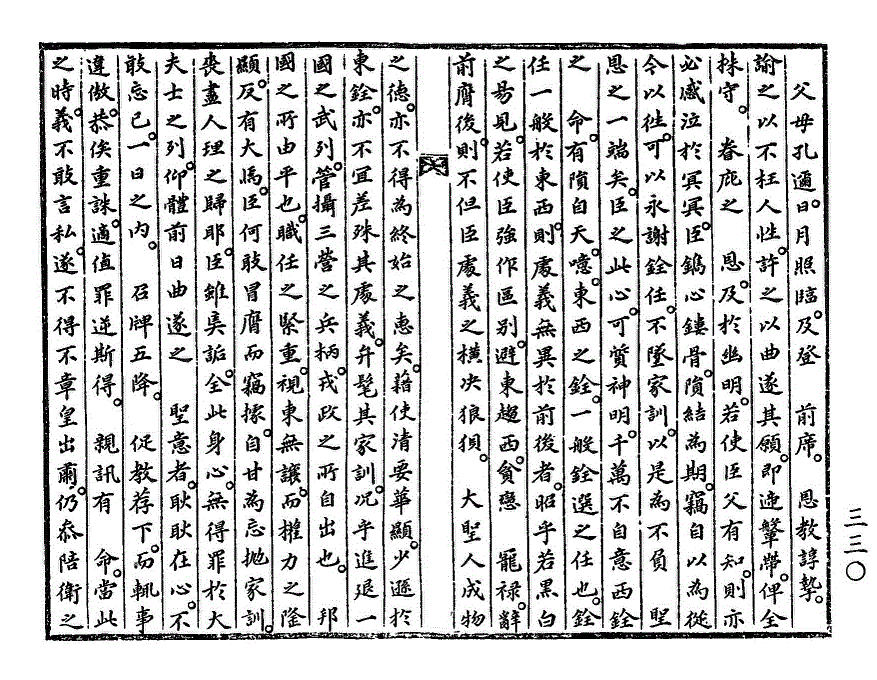 父母孔邇日月照臨及登 前席 恩教諄摯
諭之以不枉人性許之以曲遂其願即遞鞶帶俾全
株守 眷庇之 恩及於幽明若使臣父有知則亦
必感泣於冥冥臣鐫心鏤骨隕結為期竊自以為從
今以往可以永謝銓任不墜家訓以是為不負 聖
恩之一端矣臣之此心可質神明千萬不自意西銓
之 命有隕自天噫東西之銓一般銓選之任也銓
任一般於東西則處義無異於前後者昭乎若黑白
之易見若使臣強作區別避東趨西貪戀 寵祿辭
前膺後則不但臣處義之橫决狼狽 大聖人成物
之德亦不得為終始之惠矣藉使清要華顯少遜於
東銓亦不宜差殊其處義弁髦其家訓况乎進退一
國之武列管攝三營之兵柄戎政之所自出也 邦
國之所由平也職任之緊重視東無讓而權力之隆
顯反有大焉臣何敢冒膺而竊據自甘為忘抛家訓
喪盡人理之歸耶臣雖奊詬全此身心無得罪於大
夫士之列仰體前日曲遂之 聖意者耿耿在心不
敢忘已一日之內 召牌五降 促教荐下而輒事
違傲恭俟重誅適值罪逆斯得 親訊有 命當此
之時義不敢言私遂不得不章皇出肅仍忝陪衛之
三三〇